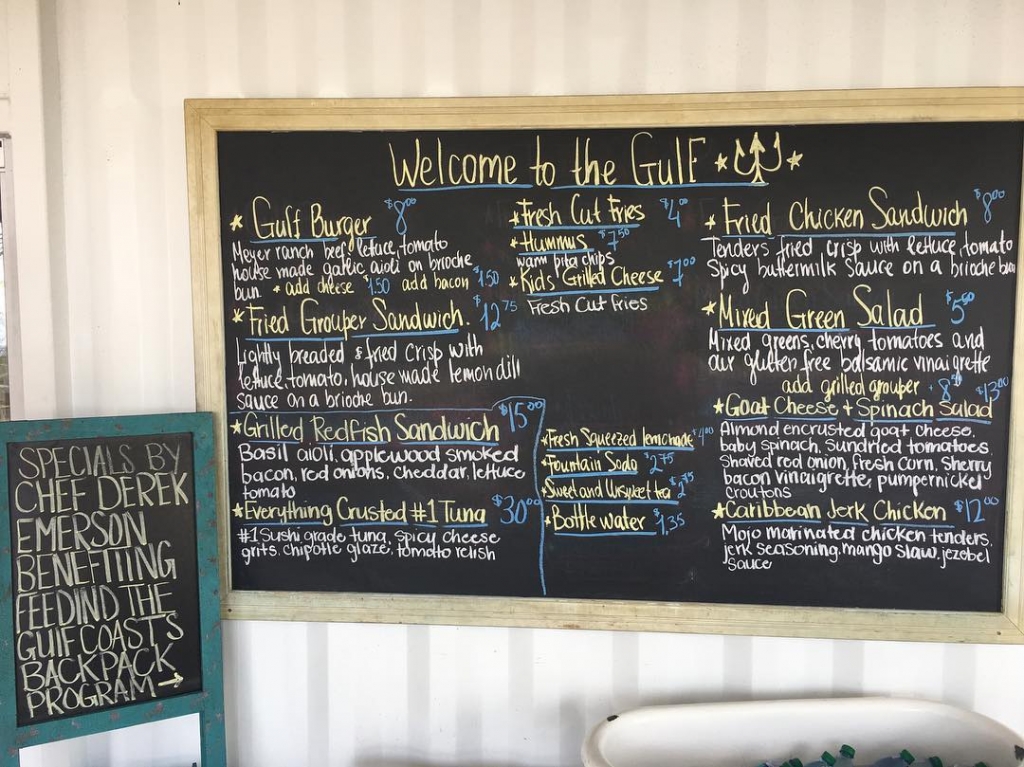 Welcome to the Gulf
Gulf Burger $8.00
Meyer ranch beef, lettuce, tomato
house made garlic aioli on brioche
bun * add cheese $1.50 add bacon $1.50
Fried Grouper Sandwich. $12.75
Lightly breaded & fried crisp with
lettuce, tomato, house made lemon dill
sauce on a brioche bun.
Grilled Redfish Sandwich $15.00
Basil aioli, applewood smoked
bacon, red onions, cheddar, lettuce
tomato
Everything Crusted #1 Tuna $30.00
#1 Sushi grade tuna, spicy cheese
grits, chipotle glaze, tomato relish
Fresh Cut Fries $4.00
Hummus $7.50
warm pita chips
Kid's Grilled Cheese $7.00
Fresh Cut fries
Fresh Squeezed lemonade $4.00
Fountain Soda $2.75
Sweet and Unsweet tea
Bottle water $1.35
Fried Chicken Sandwich $8.00
Tenders fried crisp with lettuce, tomato
Spicy buttermilk sauce on a brioche bun
Mixed Green Salad
Mixed greens, cherry tomatoes and
our gluten free balsamic vinaigrette
add grilled grouper
Goat Cheese + Spinach Salad $13.00
Almond encrusted goat cheese,
baby spinach, sundried tomatoes,
shaved red onion, fresh corn, sherry
bacon vinaigrette, pumpernickel
croutons
Caribbean Jerk Chicken $12.00
Mojo marinated chicken tenders,
jerk seasoning, mango slaw, jezebel
sauce
SPECIALS BY
CHEF DEREK
EMERSON
BENEFITING
FEEDIND THE
GULF COAST'S
BACKPACK
PROGRAM →